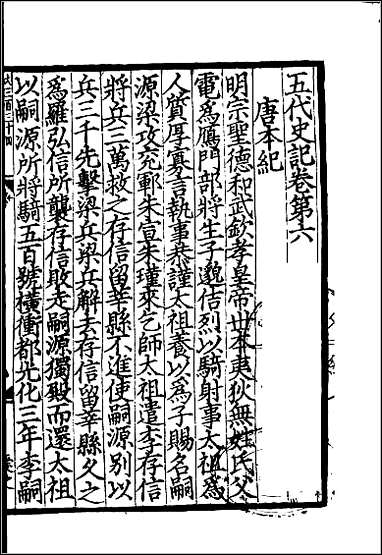 五代史記卷第六
唐本紀
明宗聖德和武欽孝皇帝世本夷狄無姓氏父
電爲鴈門部將生子邈佶烈以騎射事太祖爲
人質厚寡言執事恭謹太祖養以爲子賜名嗣
源梁攻兖鄆朱宣朱瑾來乞師太祖遣李存信
將兵三萬救之存信留莘縣不進使嗣源别以
兵三千先擊梁兵梁兵解去存信留莘縣久之
爲羅弘信所襲存信敗走嗣源獨殿而還太祖
以嗣源所將騎五百號橫衝都光化三年李嗣